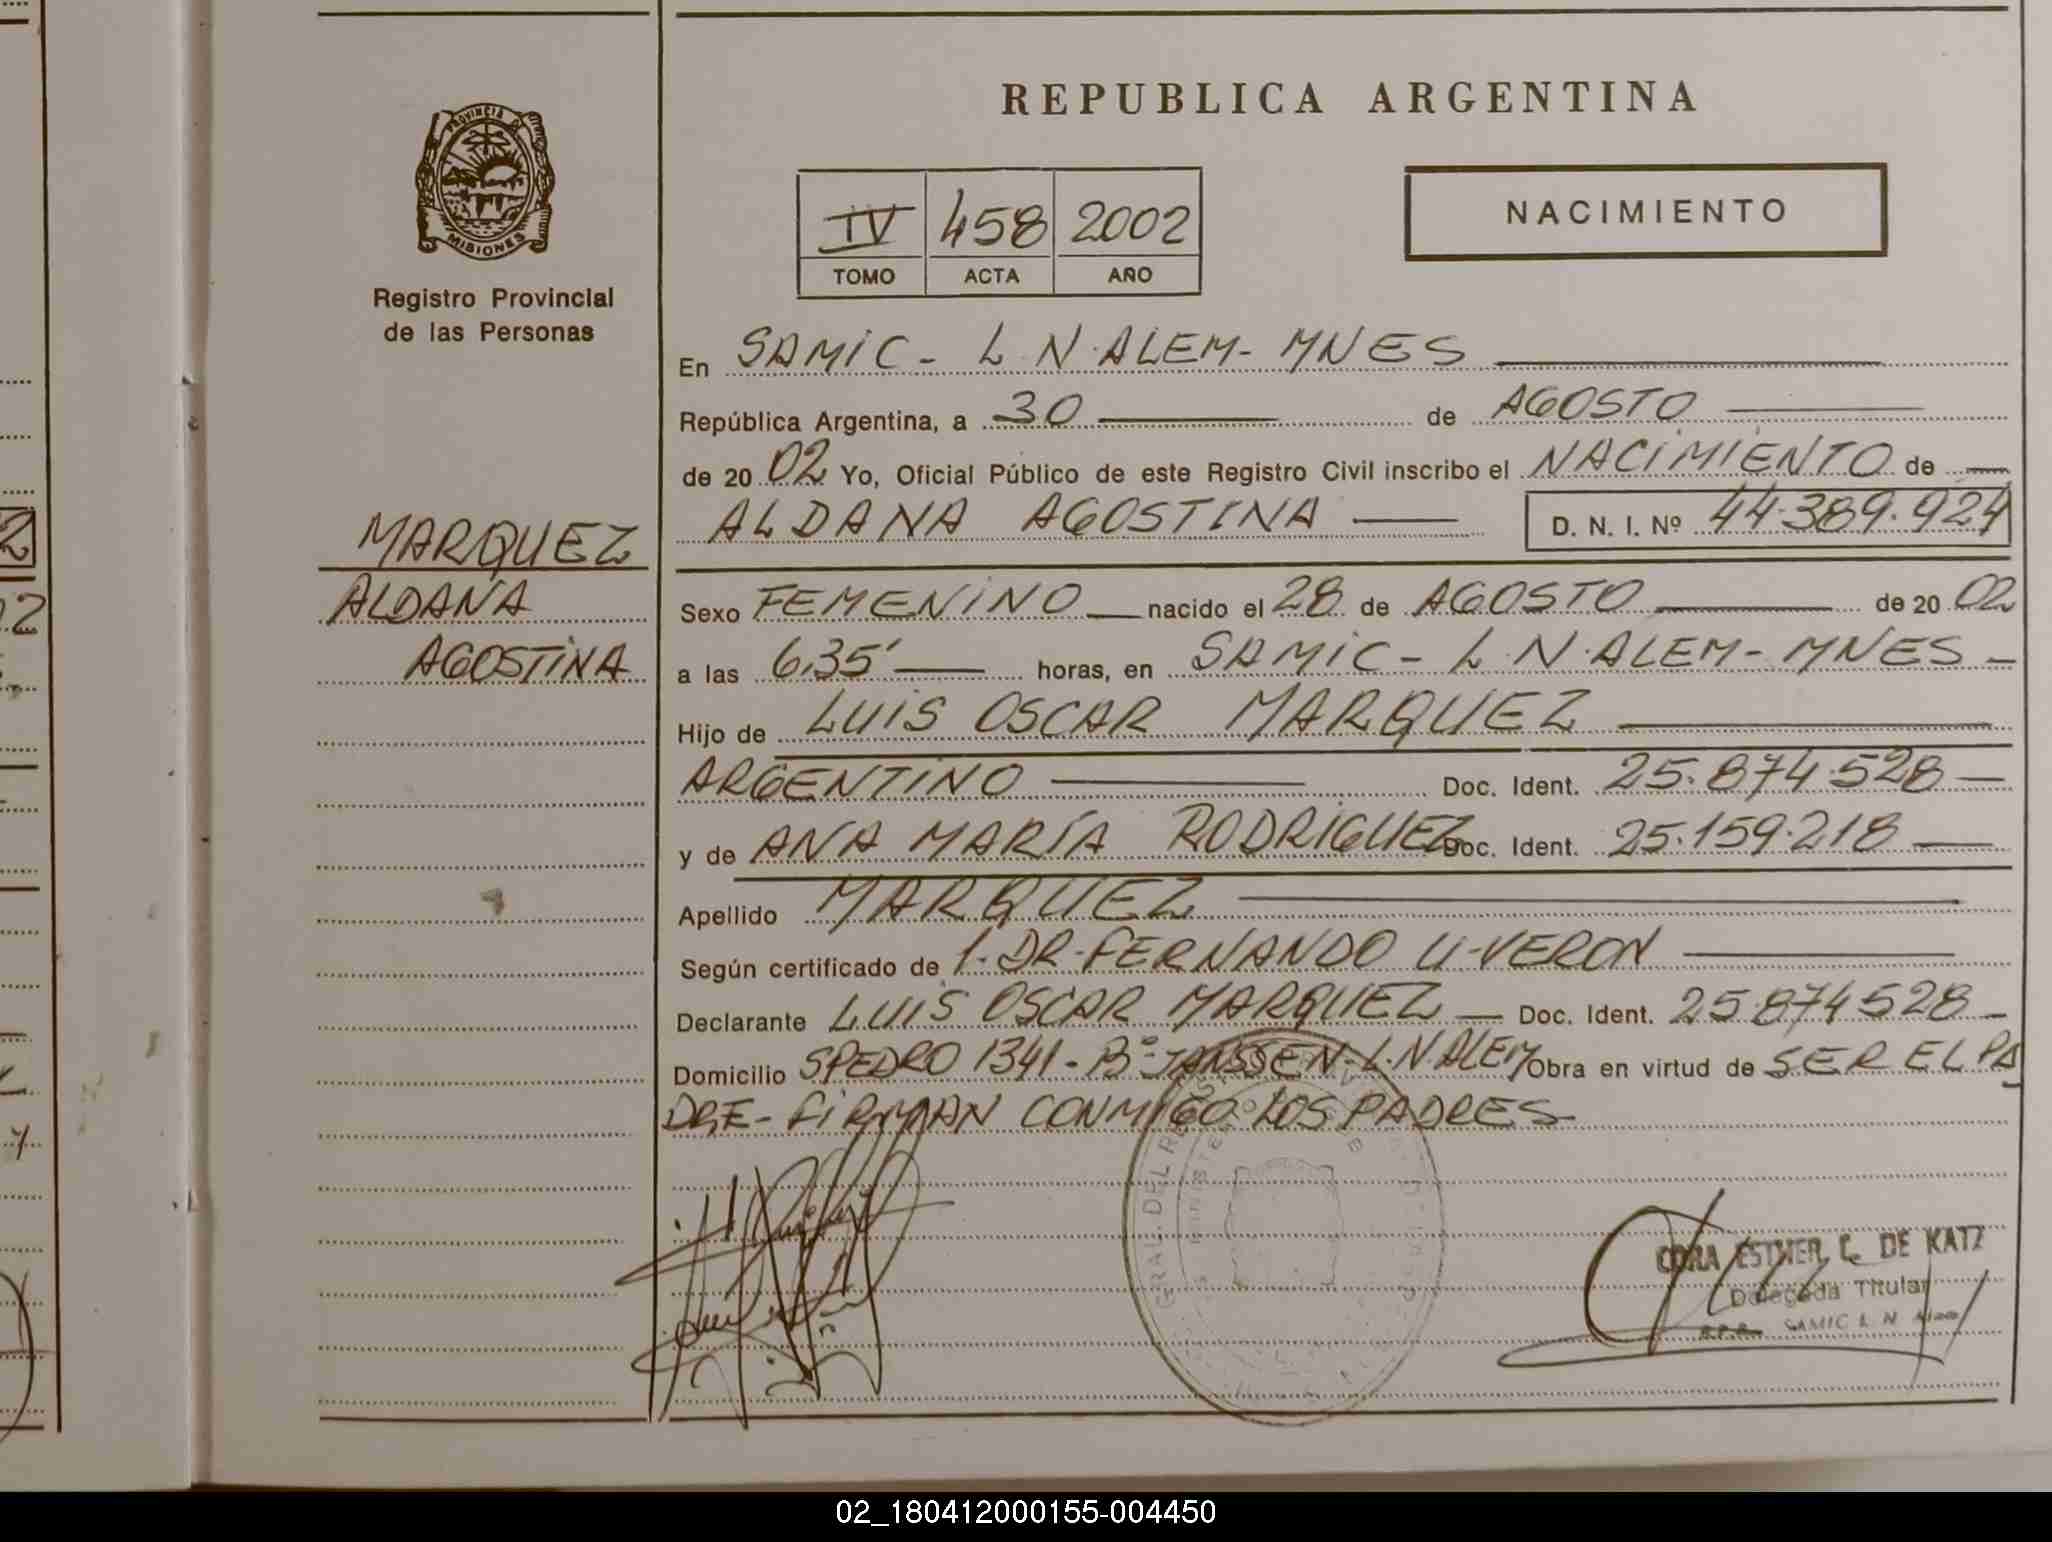 PROVINCIA DE
MISIONES
Registro Provincial
de las Personas
MARQUEZ
ALDANA
AGOSTINA
REPUBLICA ARGENTINA
IV 458 2002
TOMO ACTA AÑO
NACIMIENTO
En SAMIC - L. N. ALEM - MNES
República Argentina, a 30 de AGOSTO
de 20 02 Yo, Oficial Público de este Registro Civil inscribo el NACIMIENTO de
ALDANA AGOSTINA D. N. I. Nº 44.389.924
Sexo FEMENINO nacido el 28 de AGOSTO de 20 02
a las 6,35' horas, en SAMIC - L. N. ALEM - MNES -
Hijo de LUIS OSCAR MARQUEZ
ARGENTINO Doc. Ident. 25.874.528
y de ANA MARÍA RODRIGUEZ Doc. Ident. 25.159.218
Apellido MARQUEZ
Según certificado de 1. DR. FERNANDO U. VERON
Declarante LUIS OSCAR MARQUEZ Doc. Ident. 25.874528
Domicilio S PEDRO 1341 - Bº JANSSEN - L. N ALEM Obra en virtud de SER EL PA
DRE - FIRMAN CONMIGO LOS PADRES -
CORA ESTHER C. DE KATZ
Delegada Titular
R.P.P. SAMIC L N Alem
02_180412000155-004450